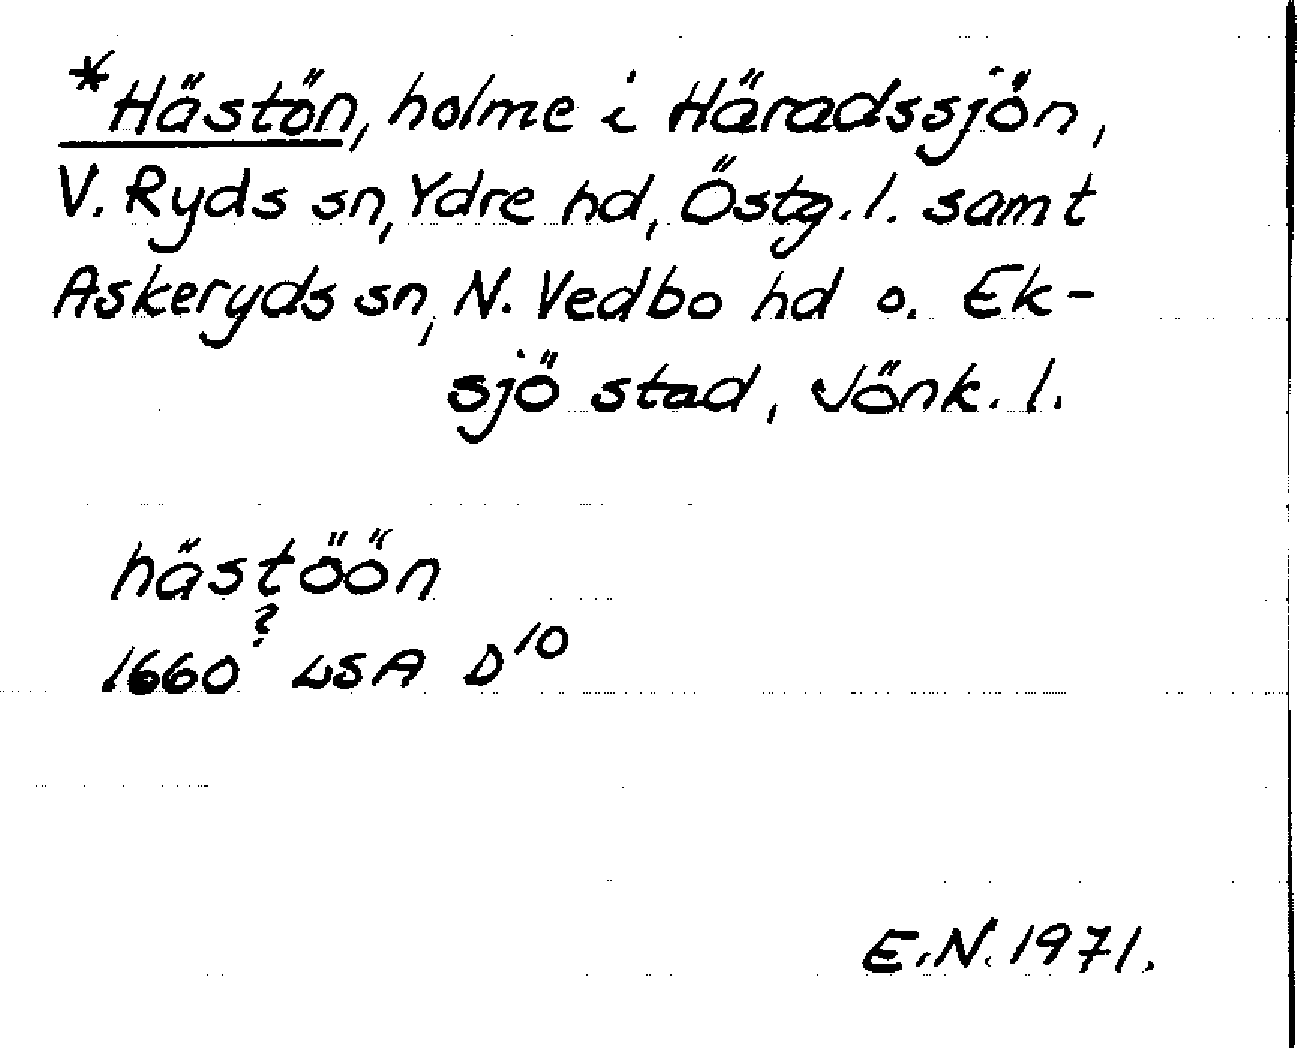 *Hästön, holme i Häradssjön,
V. Ryds sn, Ydre hd, Östg. l. samt
Askeryds sn, N. Vedbo hd o. Ek-
sjö stad, Jönk. l.
hästöön
1660? LSA D10
E.N. 1971.